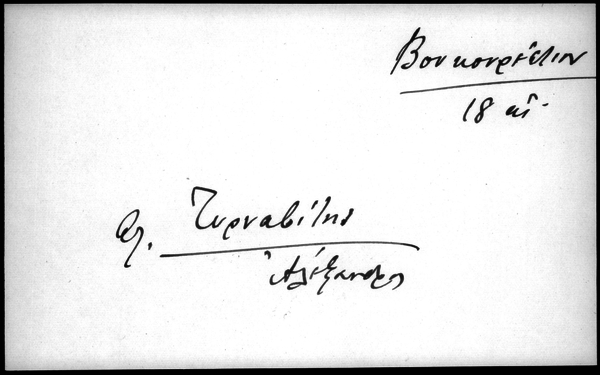 Βουκουρέστιον
18 αἰ.
βλ. Τυρναβίτης
Ἀλέξανδρος